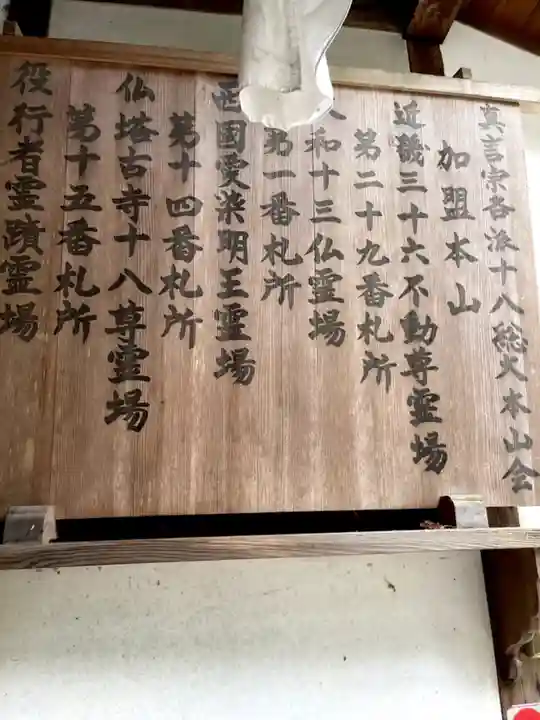 真言宗各派十八総大本山会
加盟本山
近畿三十六不動尊霊場
第二十九番札所
和十三仏霊場
第一番札所
西国愛染明王霊場
第十四番札所
仏塔古寺十八尊霊場
第十五番札所
役行者霊蹟霊場